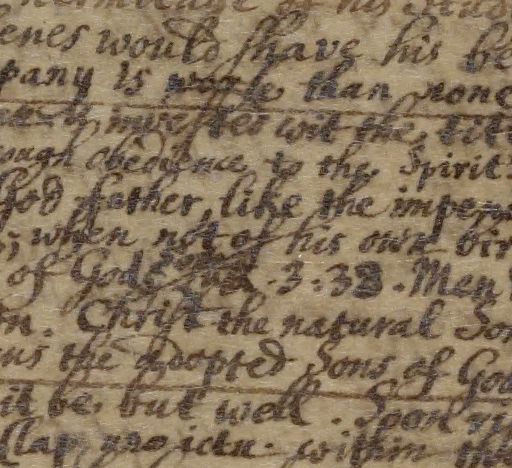 of his
enes would shave his be
pany is worse than none
wit the
ough obedience to the Spirit
God father, like the impe
s; when not of his own bir
of God Luk. 3. 38. Men
m. Christ the natural Son
us the adopted Sons of God
it be, but well. Soon
within the